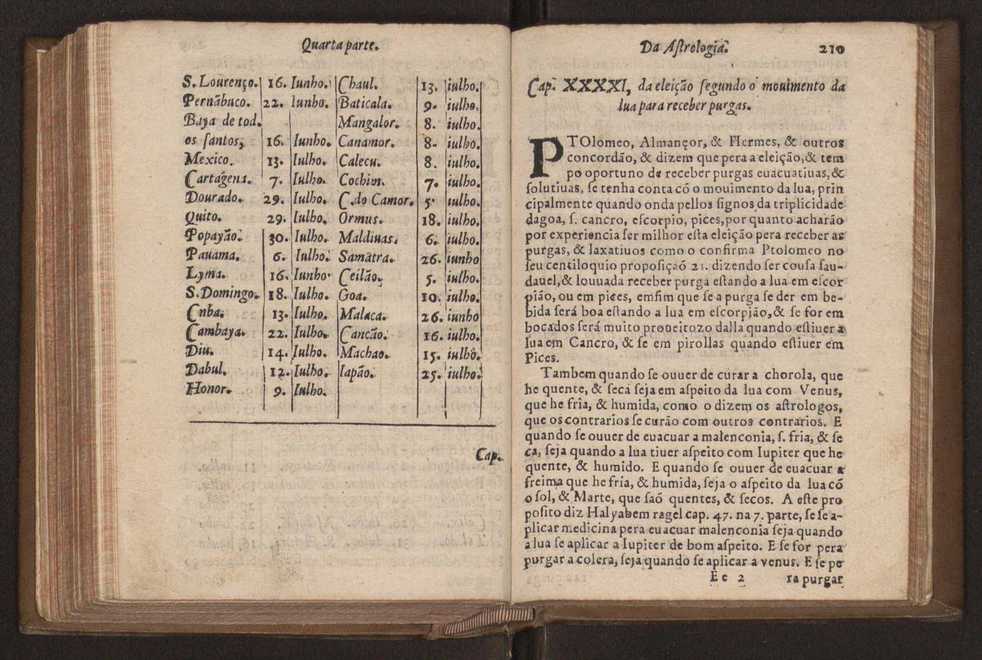 Quarta parte.
S. Lourenço. 16. Iunho. Chaul. 13. iulho.
Pernãbuco. 22. Iunho. Baticala. 9. iulho.
Baya de tod. Mangalor. 8. iulho.
os santos, 16. Iunho. Canamor. 8. iulho.
Mexico. 13. Iulho. Calecu. 8. iulho.
Cartagena. 7. Iulho. Cochim. 7. iulho.
Dourado. 29. Iulho. C. do Camor. 5. iulho.
Quito. 29. Iulho. Ormus. 18. iulho.
Popayão. 30. Iulho. Maldiuas. 6. iulho.
Panama. 6. Iulho. Samatra. 26. iunho
Lyma. 16. Iunho. Ceilão. 5. iulho.
S. Domingo. 18. Iulho. Goa. 10. iulho.
Cuba. 13. Iulho. Malaca. 26. iunho
Cambaya. 22. Iulho. Cancão. 16. iulho.
Diu. 14. Iulho. Machao. 15. iulho.
Dabul. 12. Iulho. Iapão. 25. iulho.
Honor. 9. Iulho.
Cap.
Da Aſtrologia. 210
Cap. XXXXI, da eleição ſegundo o mouimento da
lua para receber purgas.
PTOlomeo, Almançor, & Hermes, & outros
concordão, & dizem que pera a eleição, & tem
po oportuno de receber purgas euacuatiuas, &
ſolutiuas, ſe tenha conta cõ o mouimento da lua, prin
cipalmente quando onda pellos ſignos da triplicidade
dagoa, ſ. cancro, eſcorpio, pices, por quanto acharão
por experiencia ſer milhor eſta eleição pera receber as
purgas, & laxatiuos como o confirma Ptolomeo no
ſeu centiloquio propoſiçaõ 21. dizendo ſer couſa ſau-
dauel, & louuada receber purga eſtando a lua em eſcor
pião, ou em pices, emfim que ſe a purga ſe der em be-
bida ſerá boa eſtando a lua em eſcorpião, & ſe for em
bocados ſerá muito proueitozo dalla quando eſtiuer a
lua em Cancro, & ſe em pirollas quando eſtiuer em
Pices.
Tambem quando ſe ouuer de curar a chorola, que
he quente, & ſeca ſeja em aſpeito da lua com Venus,
que he fria, & humida, como o dizem os aſtrologos,
que os contrarios ſe curão com outros contrarios. E
quando ſe ouuer de euacuar a malenconia, ſ. fria, & ſe
ca, ſeja quando a lua tiuer aſpeito com Iupiter que he
quente, & humido. E quando ſe ouuer de euacuar a
freima que he fria, & humida, ſeja o aſpeito da lua cõ
o ſol, & Marte, que ſaõ quentes, & ſecos. A eſte pro
poſito diz Halyabem ragel cap. 47. na 7. parte, ſe ſe a-
plicar medicina pera euacuar malenconia ſeja quando
a lua ſe aplicar a Iupiter de bom aſpeito. E ſe for pera
purgar a colera, ſeja quando ſe aplicar a venus. E ſe pe
Ee 2 ra purgar